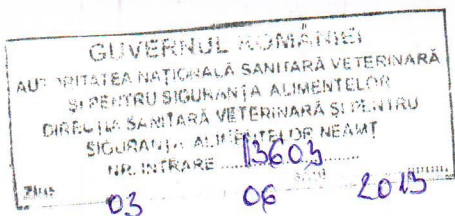 GUVERNUL ROMÂNIEI
AUTORITATEA NAȚIONALĂ SANITARĂ VETERINARĂ
ȘI PENTRU SIGURANȚA ALIMENTELOR
DIRECȚIA SANITARĂ VETERINARĂ ȘI PENTRU
SIGURANȚA ALIMENTELOR NEAMȚ
NR. INTRARE 13603
03 06 2013